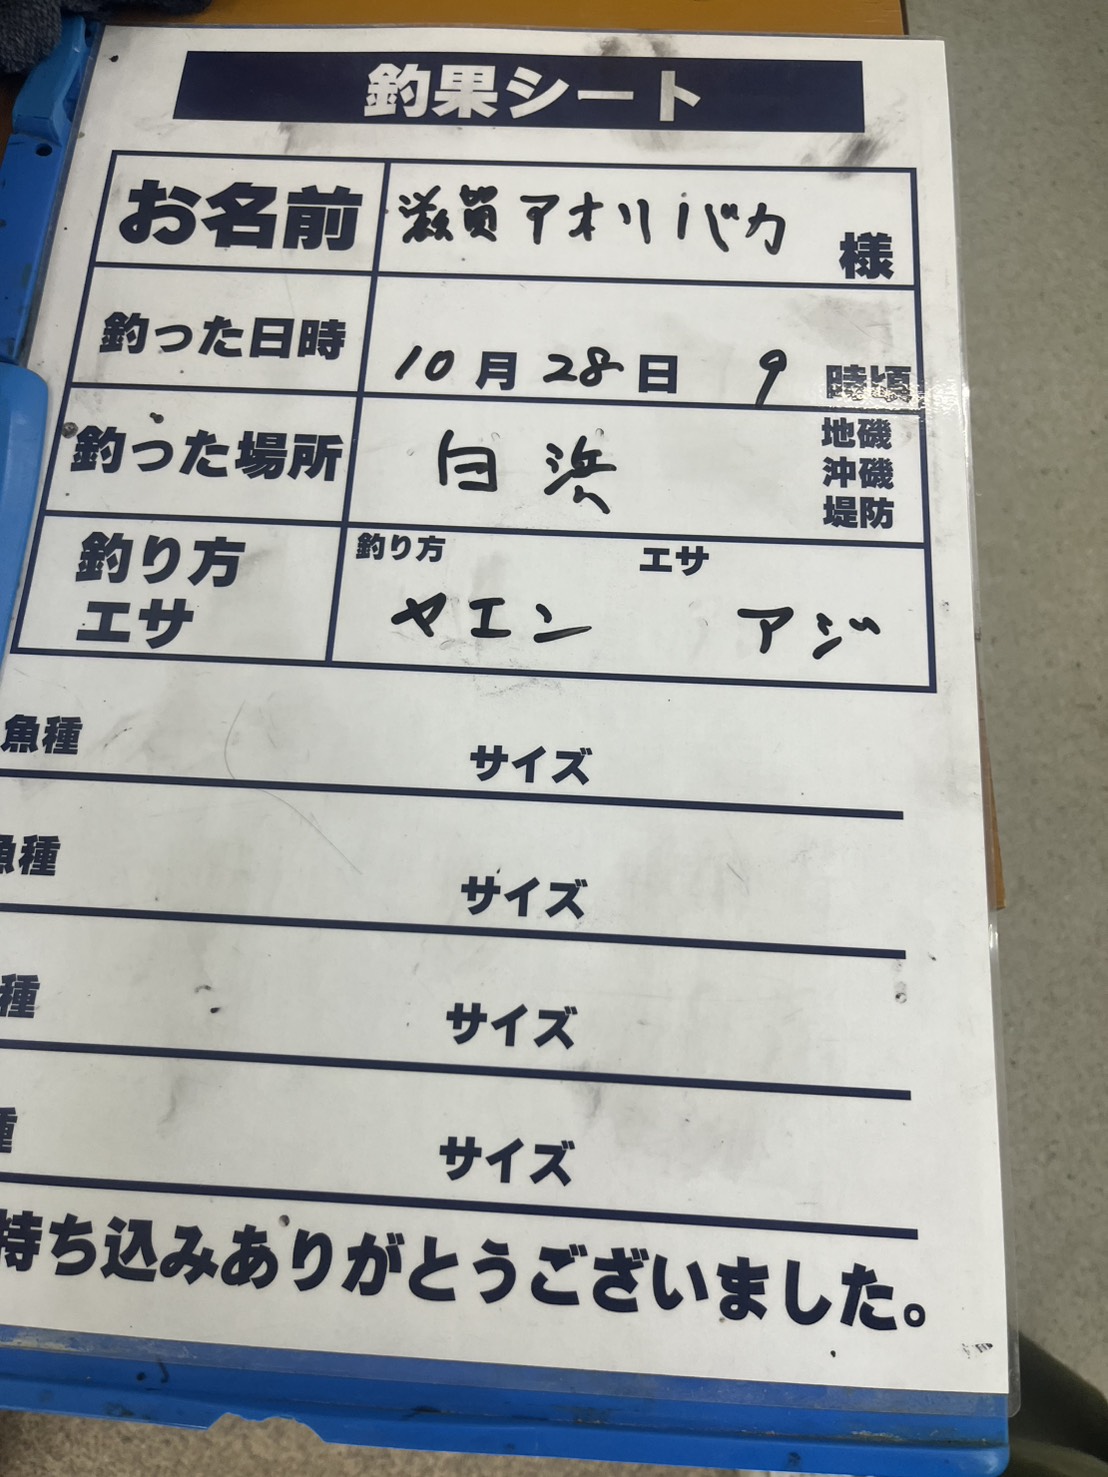 釣果シート
お名前 滋賀アオリバカ 様
釣った日時 10月28日 9時頃
釣った場所 白浜 地磯 沖磯 堤防
釣り方 エサ 釣り方 ヤエン エサ アジ
魚種 サイズ
魚種 サイズ
種 サイズ
種 サイズ
持ち込みありがとうございました。